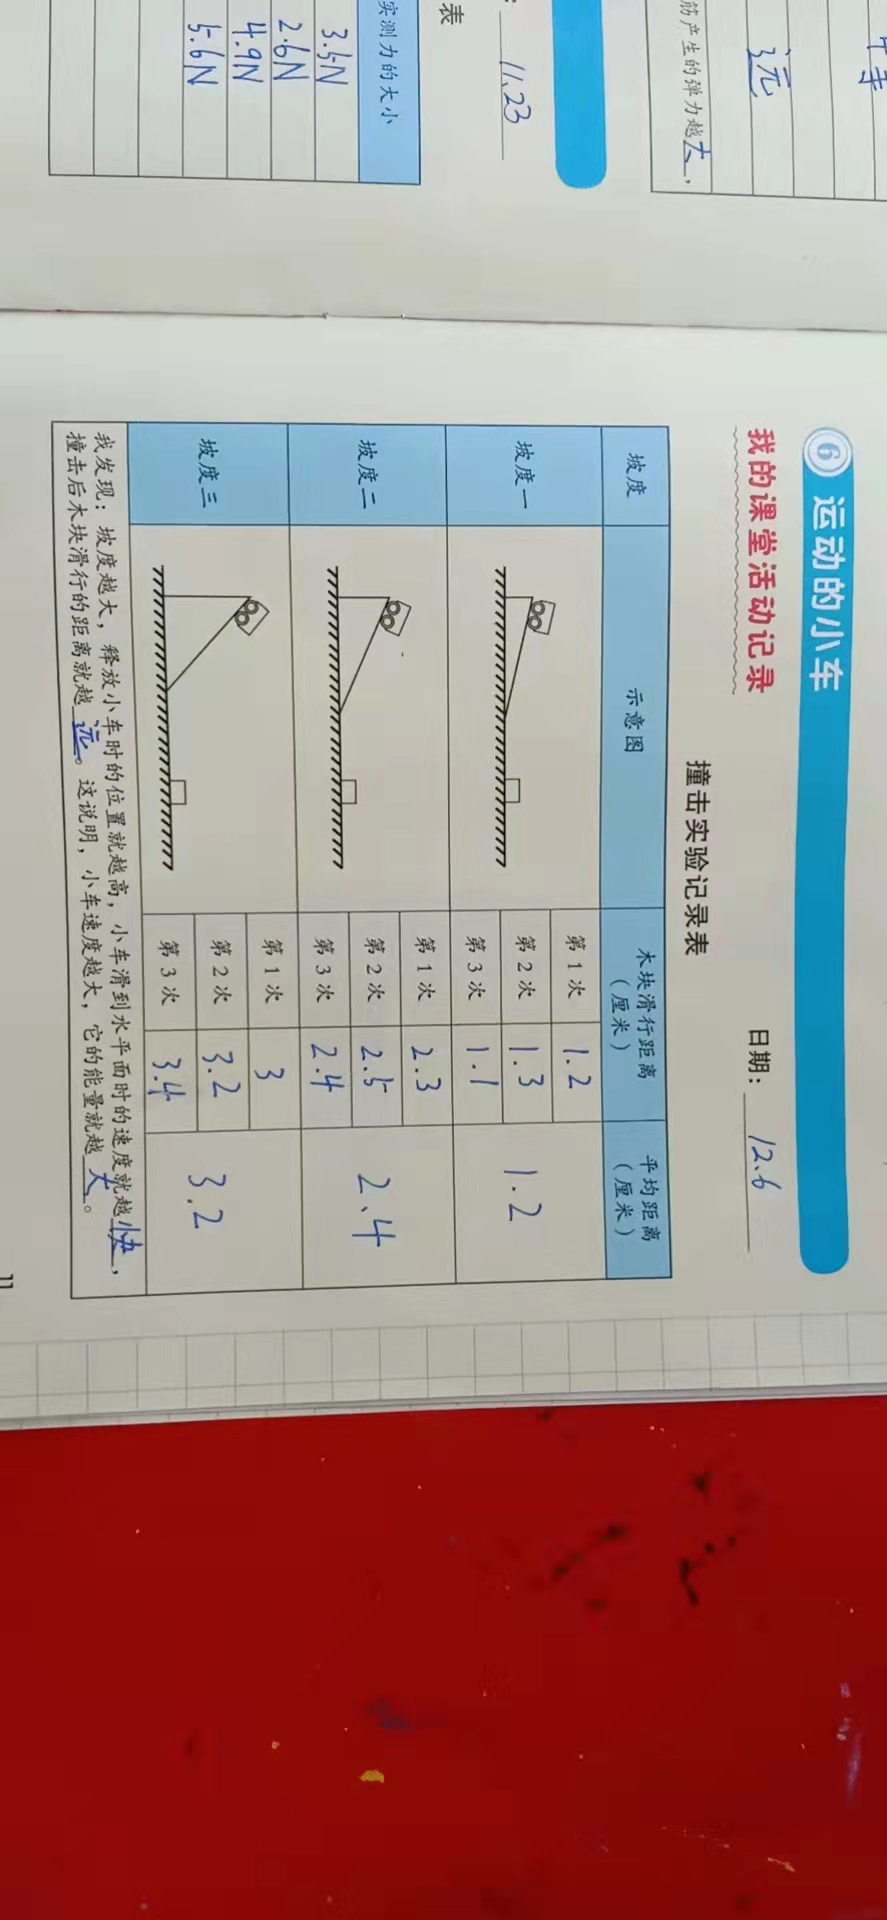 中等
远
筋产生的弹力越大，
11.23
表
实测力的大小
3.5N
2.6N
4.9N
5.6N
6 运动的小车
我的课堂活动记录
日期：12.6
撞击实验记录表
坡度 示意图 木块滑行距离（厘米） 平均距离（厘米）
坡度一 第1次 1.2 1.2
第2次 1.3
第3次 1.1
坡度二 第1次 2.3 2.4
第2次 2.5
第3次 2.4
坡度三 第1次 3 3.2
第2次 3.2
第3次 3.4
我发现：坡度越大，释放小车时的位置就越高，小车滑到水平面时的速度就越快，
撞击后木块滑行的距离就越远。这说明，小车速度越大，它的能量就越大。
11